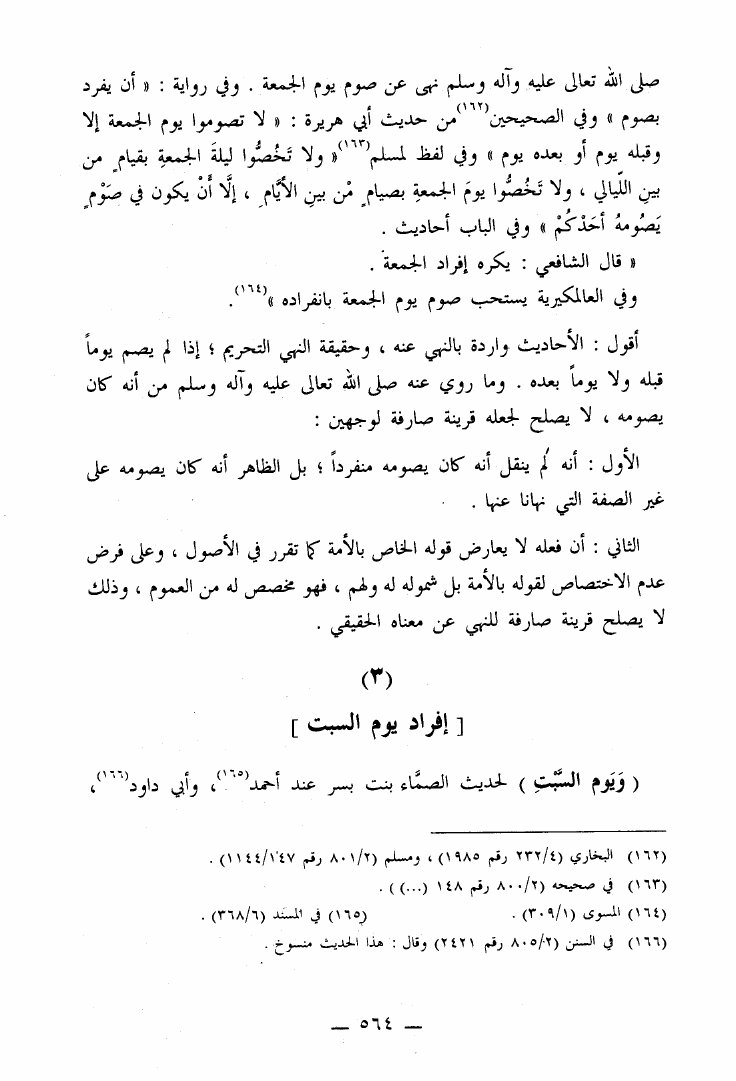 صلى الله تعالى عليه وآله وسلم نهى عن صوم يوم الجمعة . وفي رواية : « أن يفرد
بصوم » وفي الصحيحين(١٦٢) من حديث أبي هريرة : « لا تصوموا يوم الجمعة إلا
وقبله يوم أو بعده يوم » وفي لفظ لمسلم(١٦٣) « ولا تَخُصُّوا ليلةَ الجمعةِ بقيامٍ من
بينِ اللَّيالي ، ولا تَخُصُّوا يومَ الجمعةِ بصيامٍ مْن بينِ الأيَّامِ ، إلَّا أَنْ يكون في صَوْمٍ
يَصُومهُ أحَدُكُمْ » وفي الباب أحاديث .
« قال الشافعي : يكره إفراد الجمعة .
وفي العالمكيرية يستحب صوم يوم الجمعة بانفراده »(١٦٤).
أقول : الأحاديث واردة بالنهي عنه ، وحقيقة النهي التحريم ؛ إذا لم يصم يوماً
قبله ولا يوماً بعده . وما روي عنه صلى الله تعالى عليه وآله وسلم من أنه كان
يصومه ، لا يصلح لجعله قرينة صارفة لوجهين :
الأول : أنه لم ينقل أنه كان يصومه منفرداً ؛ بل الظاهر أنه كان يصومه على
غير الصفة التي نهانا عنها .
الثاني : أن فعله لا يعارض قوله الخاص بالأمة كما تقرر في الأصول ، وعلى فرض
عدم الاختصاص لقوله بالأمة بل شموله له ولهم ، فهو مخصص له من العموم ، وذلك
لا يصلح قرينة صارفة للنهي عن معناه الحقيقي .
(٣)
[ إفراد يوم السبت ]
( وَيَوم السَّبْتِ ) لحديث الصمَّاء بنت بسر عند أحمد(١٦٥)، وأبي داود(١٦٦)،
(١٦٢) البخاري (٢٣٢/٤ رقم ١٩٨٥) ، ومسلم (٨٠١/٢ رقم ١١٤٤/١٤٧) .
(١٦٣) في صحيحه (٨٠٠/٢ رقم ١٤٨ (...) ) .
(١٦٤) المسوى (٣٠٩/١) . (١٦٥) في المسند (٣٦٨/٦) .
(١٦٦) في السنن (٨٠٥/٢ رقم ٢٤٢١) وقال : هذا الحديث منسوخ .
— ٥٦٤ —